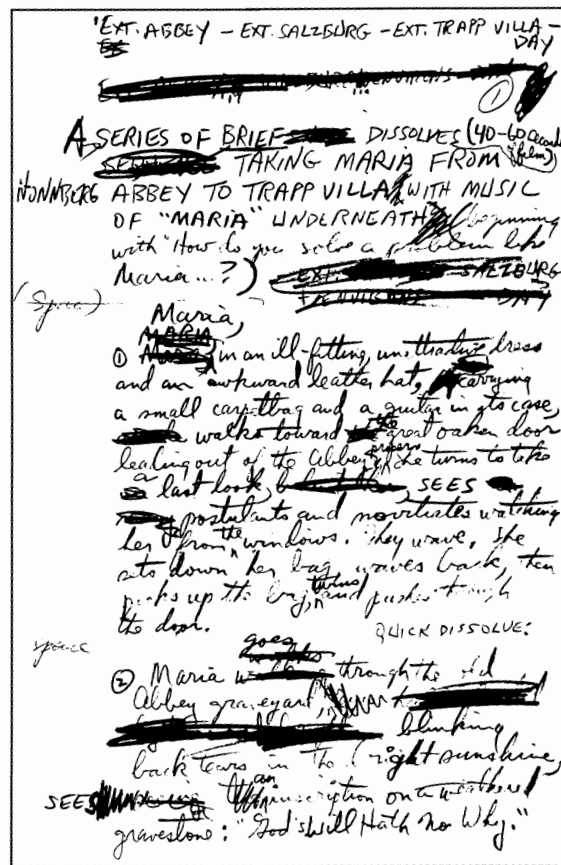 EXT. ABBEY – EXT. SALZBURG – EXT. TRAPP VILLA –
DAY
1
A SERIES OF BRIEF DISSOLVES (40-60 seconds
film)
TAKING MARIA FROM
NONNBERG ABBEY TO TRAPP VILLA, WITH MUSIC
OF "MARIA" UNDERNEATH (beginning
with "How do you solve a problem like
Maria...?)
SALZBURG
DAY
(Space)
Maria,
① in an ill-fitting, unattractive dress
and an awkward leather hat, carrying
a small carpetbag and a guitar in its case,
walks toward the great oaken door
leading out of the Abbey. She turns to take
a last look, SEES
postulants and novitiates watching
her from the windows. They wave, she
sets down her bag, waves back, then
picks up the bag, turns and pushes through
the door.
QUICK DISSOLVE:
space
goes
② Maria through the old
Abbey graveyard,
blinking
back tears in the bright sunshine,
SEES an inscription on a weathered
gravestone: "God's Will Hath No Why."